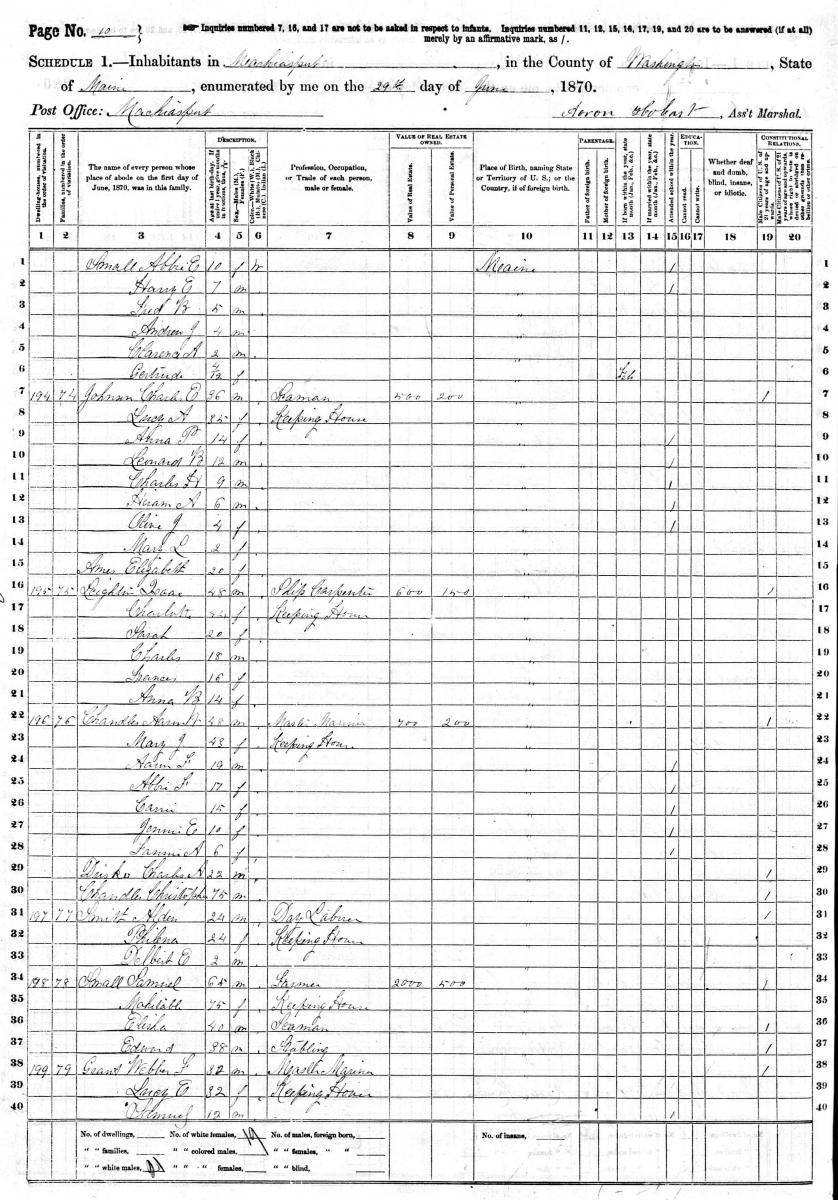 Page No. 10
Inquiries numbered 7, 16, and 17 are not to be asked in respect to infants. Inquiries numbered 11, 12, 15, 16, 17, 19, and 20 are to be answered (if at all)
merely by an affirmative mark, as /.
SCHEDULE 1.—Inhabitants in Machiasport, in the County of Washington, State
of Maine, enumerated by me on the 29th day of June, 1870.
Post Office: Machiasport Aaron Hobart, Ass't Marshal.
DESCRIPTION. VALUE OF REAL ESTATE OWNED. PARENTAGE. EDUCATION. CONSTITUTIONAL RELATIONS.
Dwelling-houses, numbered in the order of visitation.
Families, numbered in the order of visitation.
The name of every person whose place of abode on the first day of June, 1870, was in this family.
Profession, Occupation, or Trade of each person, male or female.
Value of Real Estate.
Value of Personal Estate.
Place of Birth, naming State or Territory of U. S.; or the Country, if of foreign birth.
Father of foreign birth.
Mother of foreign birth.
If born within the year, state month (Jan., Feb., &c.)
If married within the year, state month (Jan., Feb., &c.)
Attended school within the year.
Cannot read.
Cannot write.
Whether deaf and dumb, blind, insane, or idiotic.
1 2 3 4 5 6 7 8 9 10 11 12 13 14 15 16 17 18 19 20
1 Small Abbie E 10 f W Maine / 1
2 Harry E 7 m " / 2
3 Fred B 5 m " 3
4 Andrew J 4 m " 4
5 Clarence A 2 m " 5
6 Gertrude 4/12 f " Feb 6
7 194 74 Johnson Charles E 36 m Seaman 500 200 " / 7
8 Lucy A 35 f Keeping House " 8
9 Anna P 14 f " / 9
10 Leonard B 12 m " / 10
11 Charles H 9 m " / 11
12 Hiram A 6 m " / 12
13 Olive J 4 f " / 13
14 Mary L 2 f " 14
15 Ames Elizabeth 20 f " 15
16 195 75 Leighton Isaac 48 m Ship Carpenter 600 150 " / 16
17 Charlotte 44 f Keeping House " 17
18 Sarah 20 f " 18
19 Charles 18 m " 19
20 Frances 16 f " 20
21 Anna B 14 f " 21
22 196 76 Chandler Aaron 48 m Master Mariner 700 200 " / 22
23 Mary J 43 f Keeping House " 23
24 19 m " / 24
25 Abbie F 17 f " / 25
26 Carrie 15 f " / 26
27 Jennie E 10 f " / 27
28 Fannie A 6 f " / 28
29 Drisko Charles A 22 m " / 29
30 Chandler Christopher 75 m " / 30
31 197 77 Smith Alden 24 m Day Laborer " / 31
32 Philena 24 f Keeping House " 32
33 Delbert E 2 m " 33
34 198 78 Small Samuel 65 m Farmer 2000 500 " / 34
35 Mehitable 75 f Keeping House " 35
36 Elisha 40 m Seaman " / 36
37 Edward 38 m " / 37
38 199 79 Grant Webber F 32 m Master Mariner " / 38
39 Lucy E 32 f Keeping House " 39
40 12 m " / 40
No. of dwellings, No. of white females, 19 No. of males, foreign born, No. of insane,
" " families, " " colored males, " " females, " "
" " white males, 21 " " " females, " " blind,